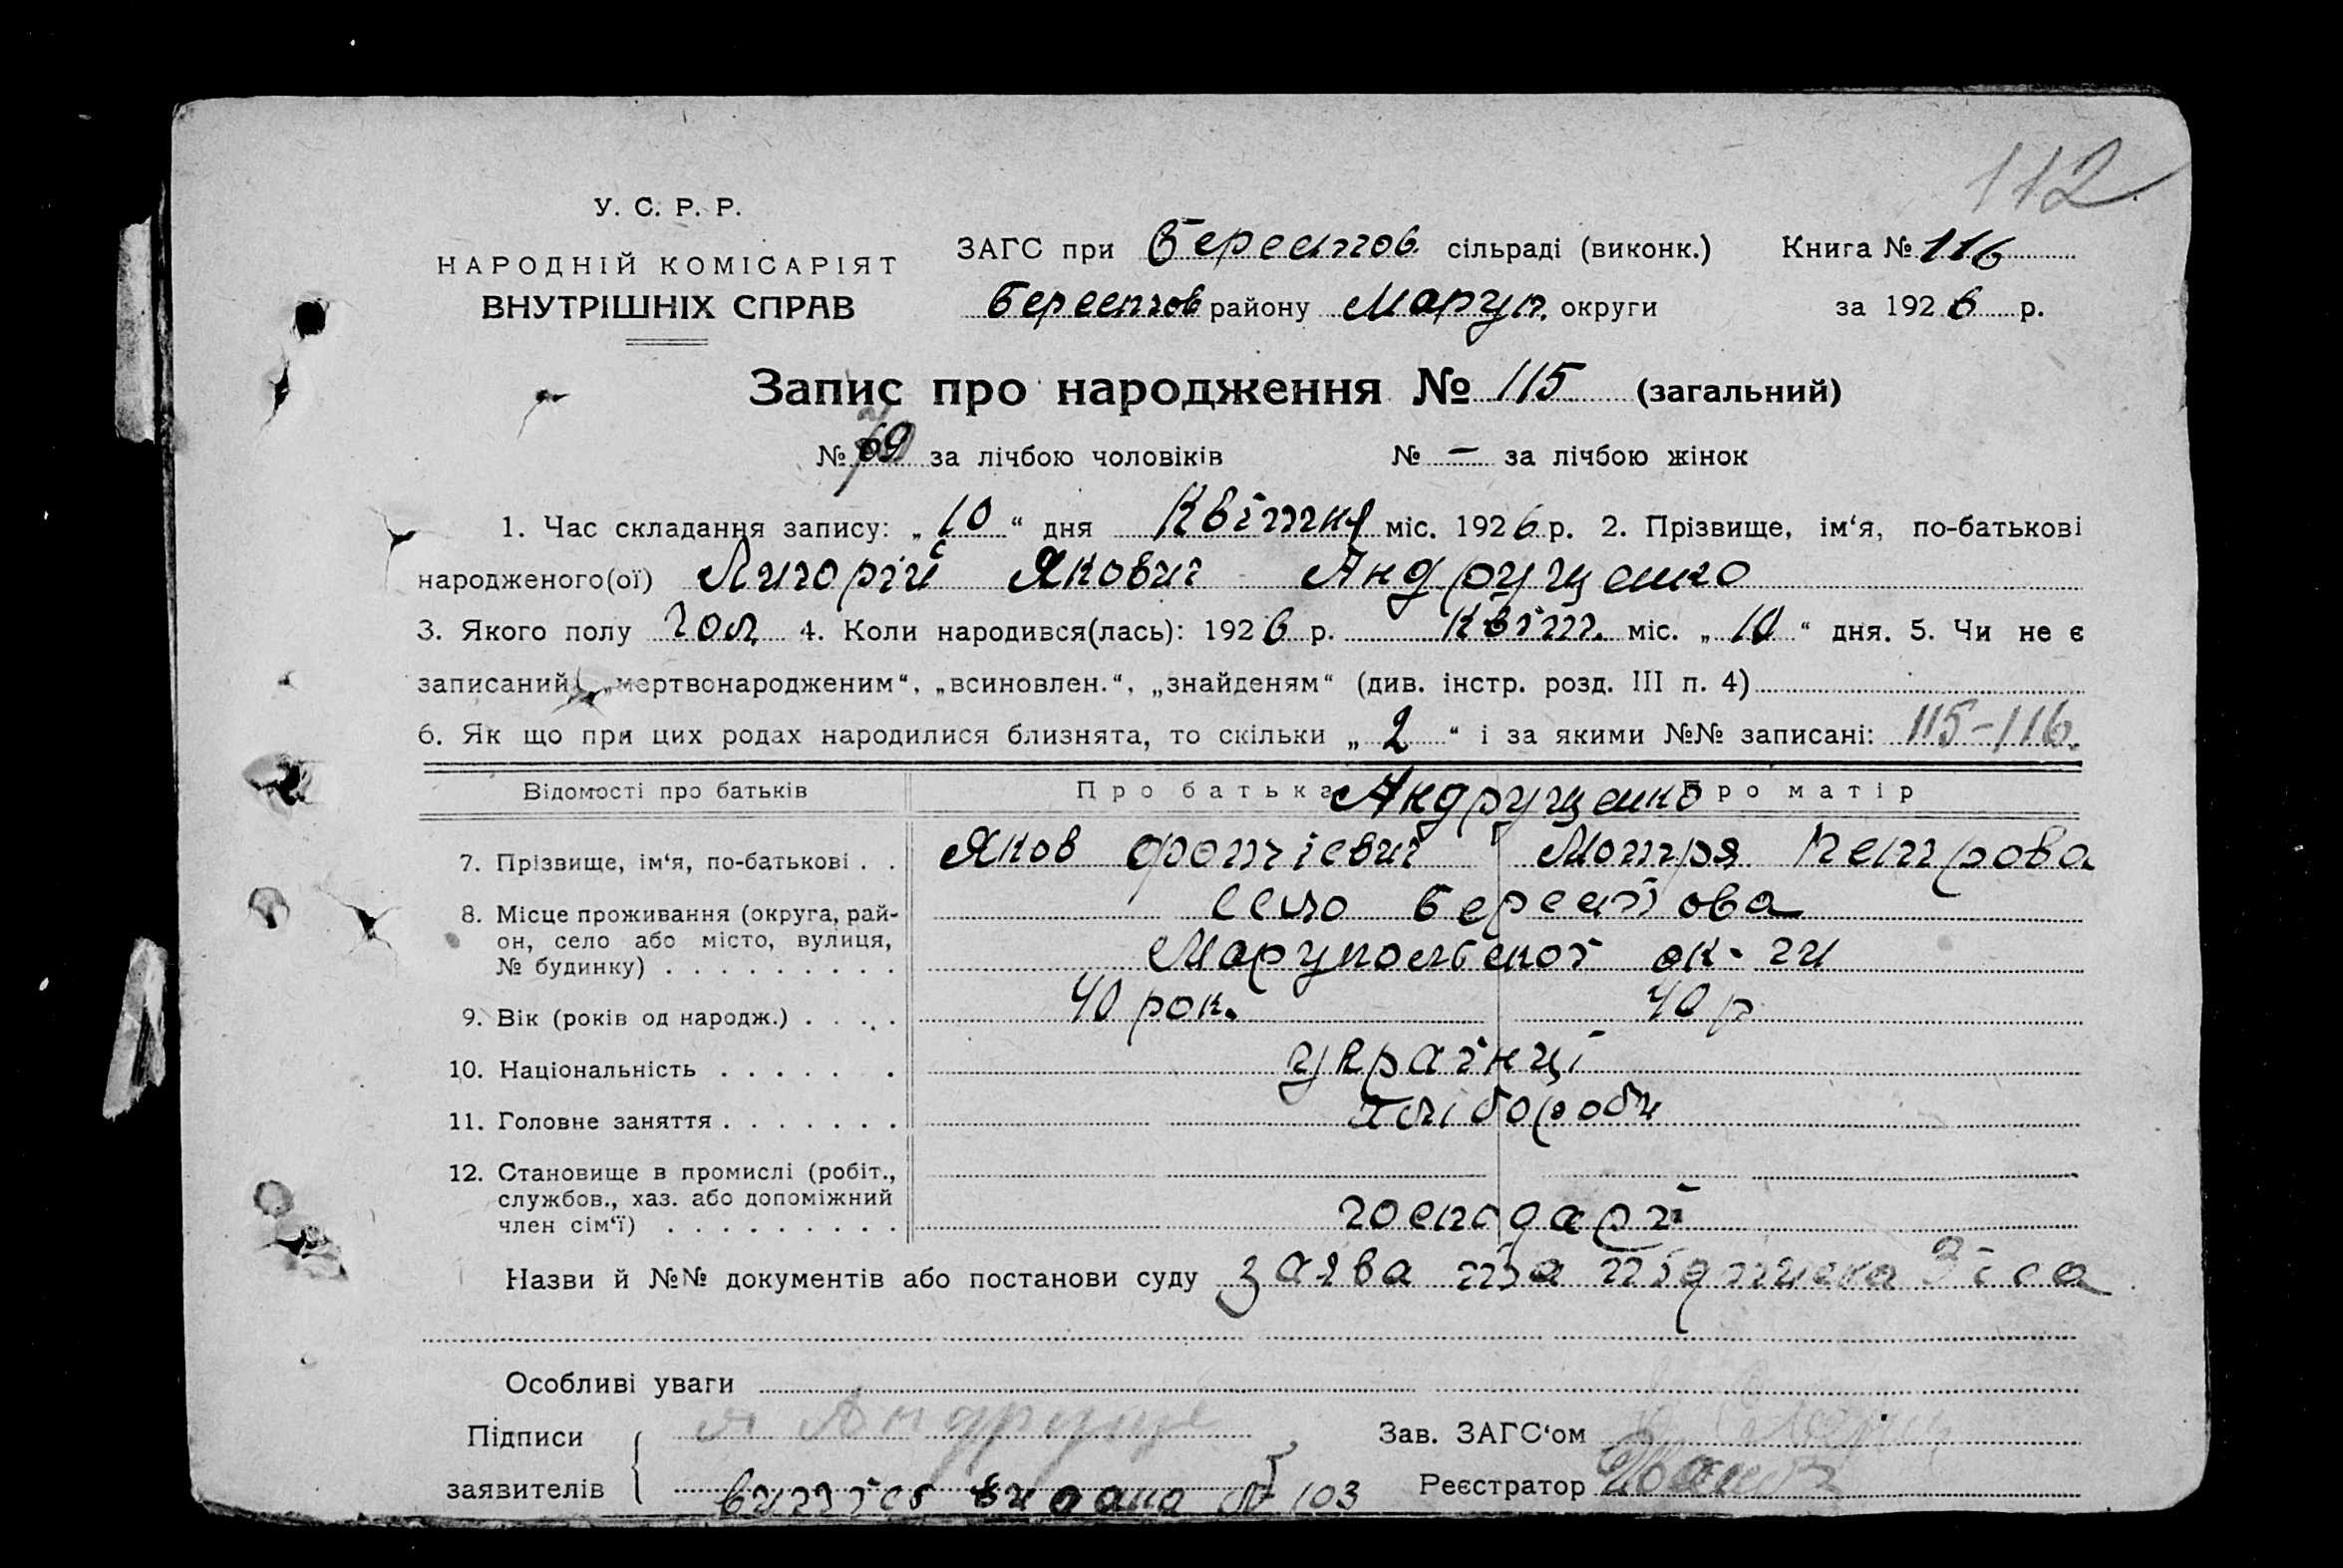 112
У. С. Р. Р.
НАРОДНІЙ КОМІСАРІЯТ
ВНУТРІШНІХ СПРАВ
ЗАГС при Берестов. сільраді (виконк.) Книга № 116
Берестов району Маруп. округи за 1926 р.
Запис про народження № 115 (загальний)
№ за лічбою чоловіків № — за лічбою жінок
1. Час складання запису: „10“ дня Квітня міс. 1926 р. 2. Прізвище, ім‘я, по-батькові
народженого(ої) Лигорій Якович Андрущенко
3. Якого полу чол 4. Коли народився(лась): 1926 р. квіт. міс. „10“ дня. 5. Чи не є
записаний „мертвонародженим“, „всиновлен.“, „знайденям“ (див. інстр. розд. III п. 4)
6. Як що при цих родах народилися близнята, то скільки „2“ і за якими №№ записані: 115-116.
Відомості про батьків Про батька Про матір
Андрущенко
7. Прізвище, ім‘я, по-батькові . . Яков Фотієвич Мотря Петрова
8. Місце проживання (округа, рай-
он, село або місто, вулиця,
№ будинку) . . . . . . . . .
село Берестова
Марупольської ок-ги
9. Вік (років од народж.) . . . . 40 рок. 40 р
10. Національність . . . . . . . українці
11. Головне заняття . . . . . . . хлібороби
12. Становище в промислі (робіт.,
службов., хаз. або допоміжний
член сім‘ї) . . . . . . . . . господарі
Назви й №№ документів або постанови суду заява та
Особливі уваги
Підписи Андруще Зав. ЗАГС‘ом
заявителів Реєстратор
витяг видано № 103